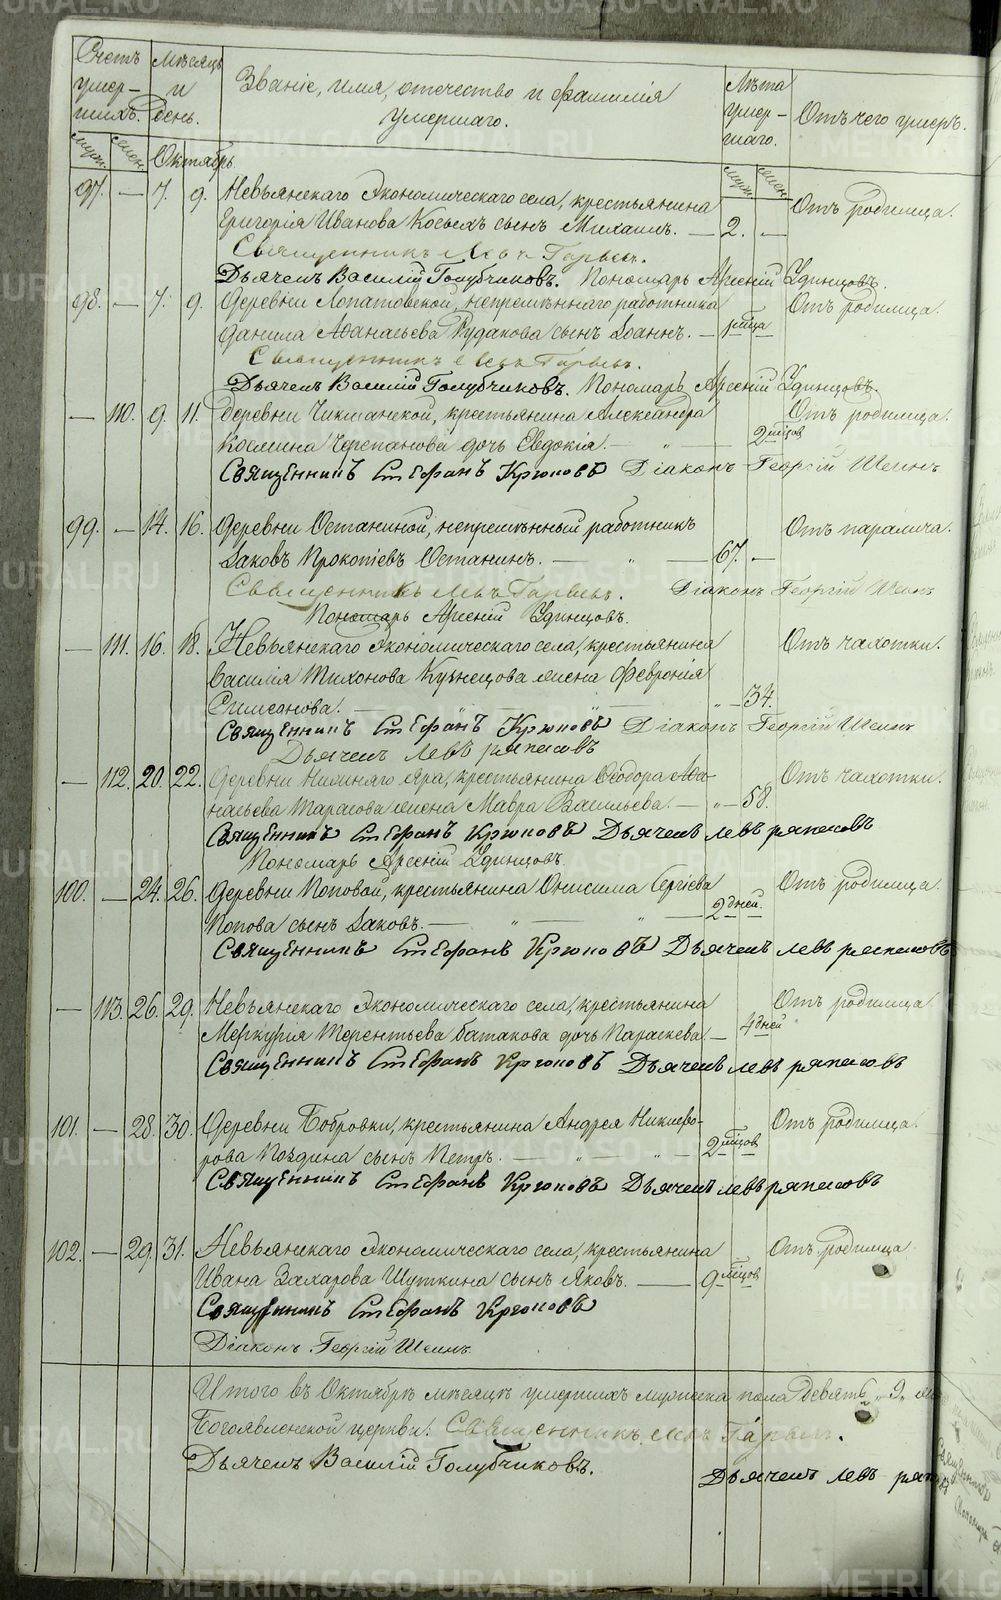 METRIKI.GASO-URAL.RU
Счетъ умер-шихъ. Мѣсяцъ и день. Званіе, имя, отечество и фамилія умершаго. Лѣта умер-шаго. Отъ чего умеръ.
муж. жен. Октябрь муж. жен.
97. — 7. 9. Невьянскаго Экономическаго села, крестьянина Отъ родимца.
Григорія Иванова Косыхъ сынъ Михаилъ. — 2. —
Священникъ Левъ Гаряевъ.
Дьячекъ Василій Голубчиковъ. Пономарь Арсеній Удинцовъ.
98. — 7. 9. Деревни Лопатовской, непремѣннаго работника Отъ родимца.
Данила Аѳанасьева Рудакова сынъ Іоаннъ. — 1 мѣсца
Священникъ Левъ Гаряевъ.
Дьячекъ Василій Голубчиковъ. Пономарь Арсеній Удинцовъ.
— 110. 9. 11. Деревни Чикманской, крестьянина Александра Отъ родимца.
Космина Черепанова дочь Евдокія. — " — 2 мѣсцов
Священникъ Стефанъ Крюковъ Діаконъ Георгій Шеинъ
99. — 14. 16. Деревни Останиной, непремѣнный работникъ Отъ паралича.
Іаковъ Прокопіевъ Останинъ. — " — 67. —
Священникъ Левъ Гаряевъ. Діаконъ Георгій Шеинъ
Пономарь Арсеній Удинцовъ.
— 111. 16. 18. Невьянскаго Экономическаго села, крестьянина Отъ чахотки.
Василія Тихонова Кузнецова жена Февронія
Симеонова. — " — " — 34.
Священникъ Стефанъ Крюковъ Діаконъ Георгій Шеинъ
Дьячекъ Левъ ряписовъ
— 112. 20. 22. Деревни Нижняго Яра, крестьянина Ѳеодора Аѳа- Отъ чахотки.
насьева Тарасова жена Мавра Васильева. — " — 58.
Священникъ Стефанъ Крюковъ Дьячекъ левъ ряписовъ
Пономарь Арсеній Удинцовъ.
100. — 24. 26. Деревни Поповой, крестьянина Онисима Сергіева Отъ родимца.
Попова сынъ Іаковъ. — " — " — 2 дней.
Священникъ Стефанъ Крюковъ Дьячекъ левъ ряписовъ
— 113. 26. 29. Невьянскаго Экономическаго села, крестьянина Отъ родимца
Меркурія Терентьева Батакова дочь Параскева. — 4 дней
Священникъ Стефанъ Крюковъ Дьячекъ левъ ряписовъ
101. — 28. 30. Деревни Бобровки, крестьянина Андрея Никифо- Отъ родимца.
рова Поздина сынъ Петръ. — " — " — 2 мѣсцов
Священникъ Стефанъ Крюковъ Дьячекъ левъ ряписовъ
102. — 29. 31. Невьянскаго Экономическаго села, крестьянина Отъ родимца.
Ивана Захарова Шуткина сынъ Яковъ. — 9 мѣсцов
Священникъ Стефанъ Крюковъ
Діаконъ Георгій Шеинъ
Итого въ Октябрѣ мѣсяцѣ умершихъ мужеска пола девять, 9,
Богоявленской церкви: Священникъ Левъ Гаряевъ.
Дьячекъ Василій Голубчиковъ.
Дьячекъ левъ
METRIKI.GASO-URAL.RU